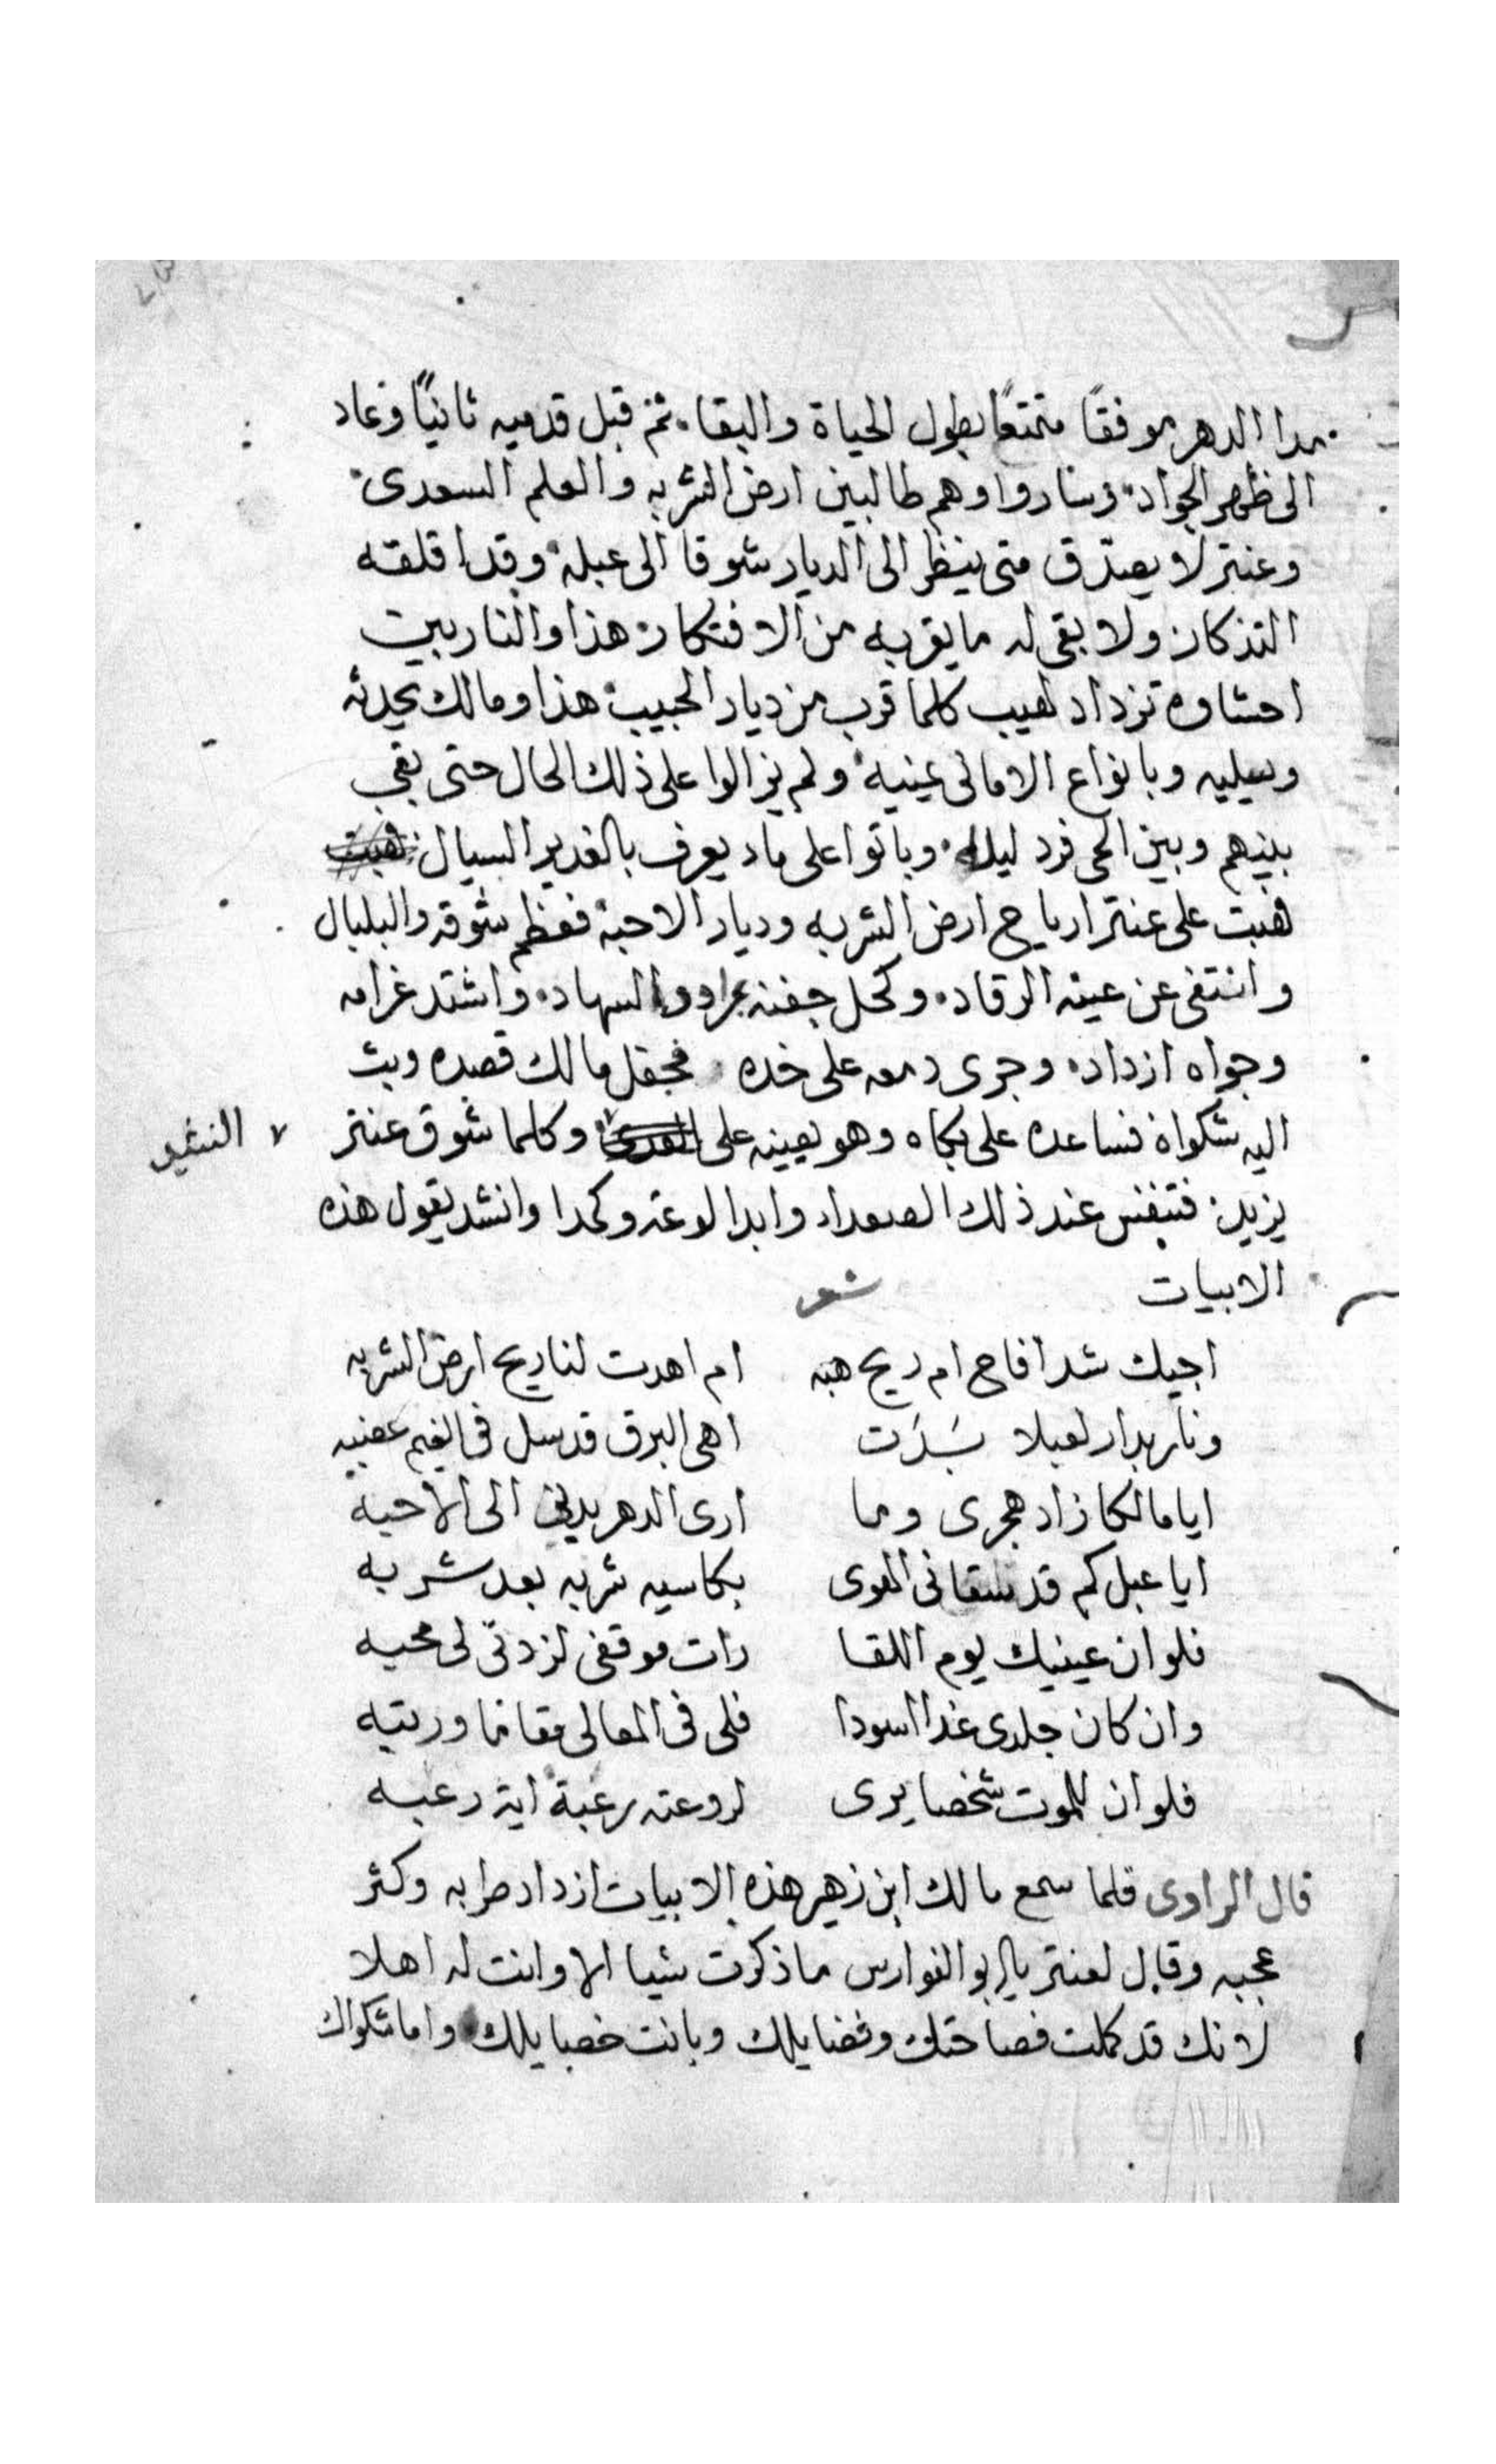 مدا الدهر موفقًا متمتعًا بطول الحياة والبقا. ثم قبل قدميه ثانيًا وعاد
الى ظهر الجواد. وساروا وهم طالبين ارض الشربه والعلم السعدى.
وعنتر لا يصدق متى ينظر الى الديار شوقا الى عبله وقد اقلقه
التذكار ولا بقى له ما يقربه من الافتكار هذا والنار بين
احشاوه تزداد لهيب كلما قرب من ديار الحبيب هذا ومالك يحدثه
ويسليه وبانواع الامانى يمنيه ولم يزالوا على ذلك الحال حتى بقى
بينهم وبين الحى فرد ليله. وباتوا على ماء يعرف بالغدير السيال
فهبت على عنتر ارياح ارض الشربه وديار الاحبة فعظم شوقه والبلبال
وانتفى عن عينه الرقاد. وكحل جفنه بمراود السهاد. واشتد غرامه
وجواه ازداد. وجرى دمعه على خده فجعل مالك قصده وبث
اليه شكواة فساعده على بكاه وهو يعينه على وكلما شوق عنتر
يزيد: فتنفس عند ذلك الصعداء وابدا لوعة وكمدا وانشد يقول هذه
الابيات شعر
اجيك شدا فاح ام ريح هبه ام اهدت لنا ريح ارض الشربه
ونار بدار لعبلا بَدَت اهى البرق قد سل فى الغيم عضبه
ايا مالكا زاد هجرى وما ارى الدهر يدنى الى الاحبه
ايا عبل كم قد سقانى الهوى بكاسيه شربه بعد شربه
فلو ان عينيك يوم اللقا رات موقفى لزدتى لى محبه
وان كان جلدى غدا اسودا فلى فى المعالى مقاما ورتبه
فلو ان للموت شخصا يرى لروعته رعبة اية رعبه
قال الراوى فلما سمع مالك ابن زهير هذه الابيات ازداد طرابه وكثر
عجبه وقال لعنتر يا ابو الفوارس ما ذكرت شيا الا وانت له اهلا
لانك قد كملت فصاحتك وفضايلك وبانت خصايلك واما شكواك